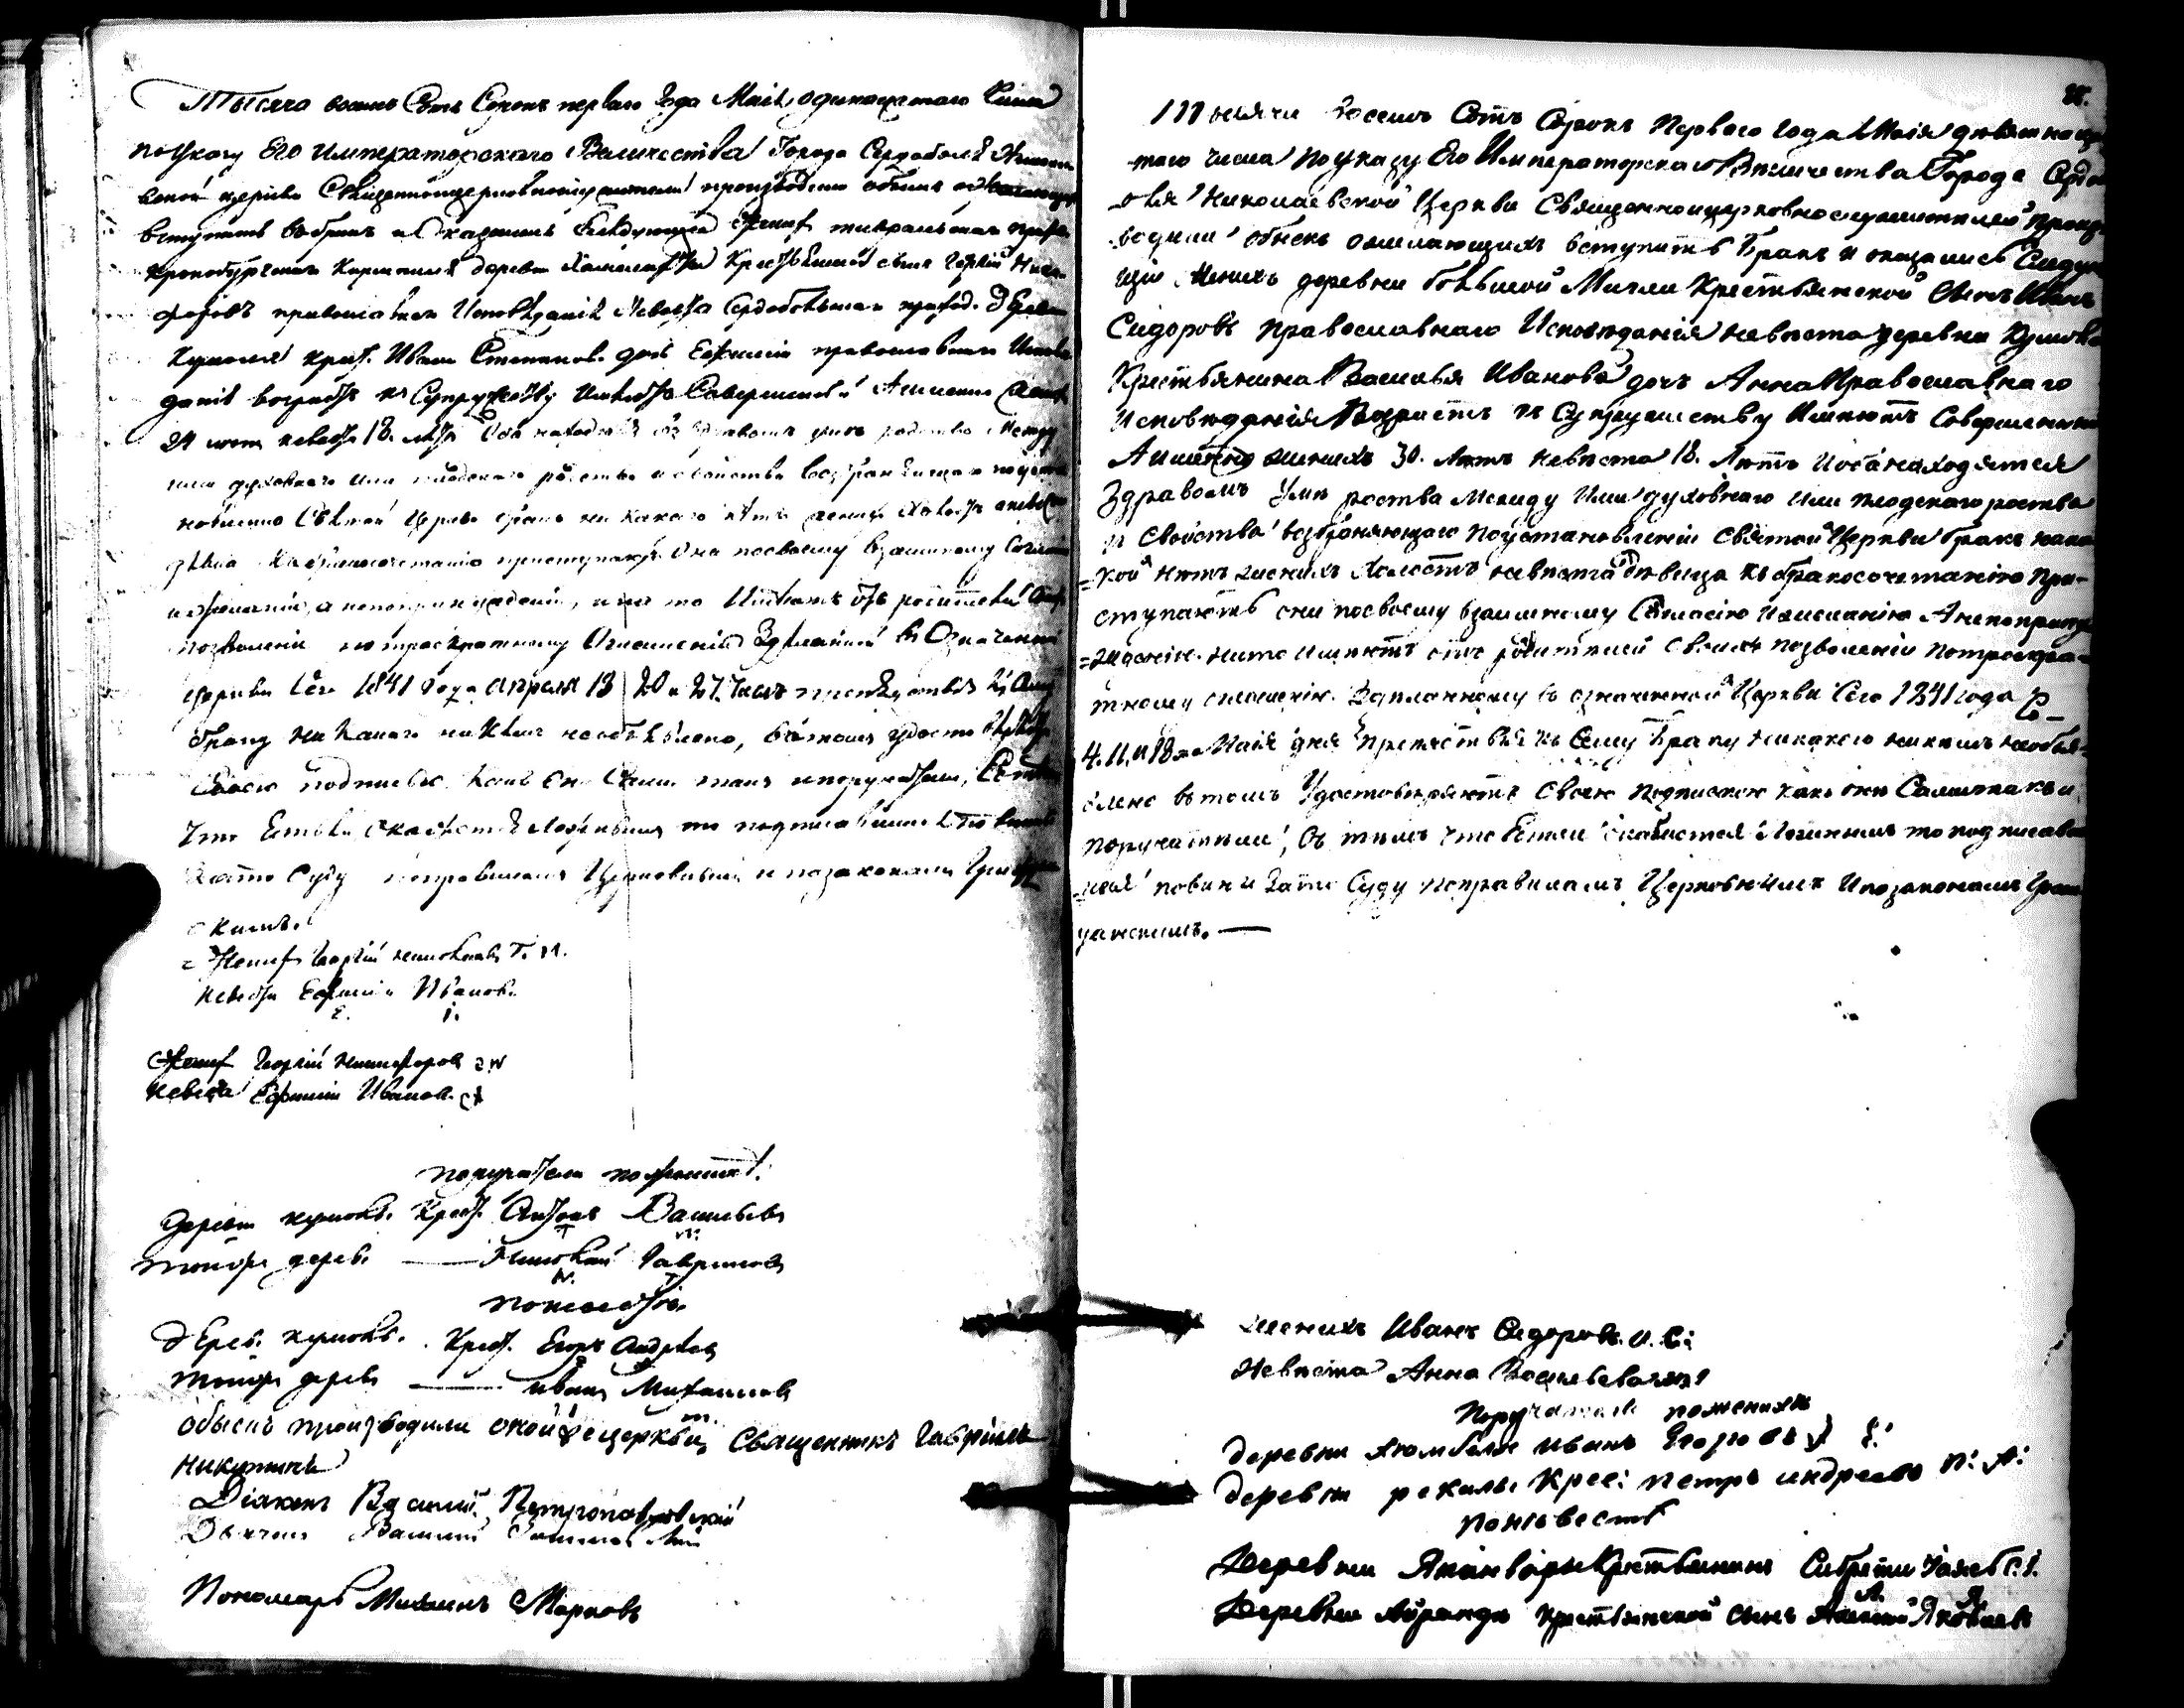 Тысяча восемь Сотъ Сорокъ перваго Года Маія одинацатаго Числа
поУказу Его Императорскаго Величества Города Сердоболя Николаев
ской церкви Священноцерковнослужители производили обыскъ о желающихъ
вступить въ бракъ и Оказались Следующее Женихъ
Кронобургскаго Кирхшпиля деревни Крестьянской сынъ Георгій Ники
форовъ православнаго Исповѣданія Невеста Сердобольскаго приход. дЕревни
Кумола крест. Ивана Степанов. дочь Евфимія православнаго Испове
данія возрастъ къ Супружеству Имѣютъ Совершенной Аименно Женихъ
24 летъ невеста 18. летъ Оба находятся въ здравомъ умѣ родства Между
ими духовнаго или плодскаго родства и свойства возбраняющаго поустан
новленію Святой Церкви бракъ ни какого нѣтъ женихъ холостъ а невеста
дѣвица Къ бракосочетанію приступаютъ Они посвоему взаимному Согласію
ижеланію, а непопринуждению, и на то Имѣютъ отъ родителей Своихъ
позволеніе по троекратному Оглашенію Здѣланной въ Означенной
церкви Сего 1841 Года апреля 13 20 и 27. Числъ препятствія къ Сему
браку ни какого ни кѣмъ необъявлено, въ томъ удостоверяютъ
Своею подпискою какъ Они Сами такъ ипоручатели, Съ тѣмъ
Что Естьли Окажется Ложнымъ то подписавшіися повинны
Зато Суду поправиламъ Церковнымъ и позаконамъ Граждан
скимъ.
Женихъ Георгій никифоровъ Г. Н.
Невеста Евфимія Иванов.
Е. І.
Женихъ Георгій Никифоровъ
Невеста Евфимія Иванов.
поручатели поженихе.
Деревни кумоль. Крест. Антонъ Васильевъ
тойже дерев. — Николай Гавриловъ
поневесте.
дЕрев. кумоль. Крест. Егоръ Андреевъ
тойже дерев — иванъ Михаиловъ
Обыскъ производили оной же церкви, Священникъ Гавріилъ
Никитинъ
Діаконъ Василій Петропавловскій
Дьячекъ Василій
Пономарь Михаилъ Марковъ
Тысячи Восемь Сотъ Сорокъ Перваго года Маія девятнаца
таго числа поуказу Его Императорскаго Величества Города Сердо
боля Николаевской Церкви Священноицерковнослужители произ
водили обыскъ ожелающихъ вступить Бракъ и оказались Следую
щіе Женихъ деревни большой Мигли Крестьянской Сынъ Иванъ
Сидоровъ православнаго Исповѣданія невѣста деревни Кумола
Крестьянина Василья Иванова дочь Анна Православнаго
Исповѣданія Возрастъ къ Супружеству Имѣютъ Совершенный
Аименно женихъ 30. Лѣтъ невѣста 18. Лѣтъ Иоба находятся
Здравомъ Умѣ роства Между Ими духовнаго или плодскаго роства
и Свойства возброняющаго Поустановленію Святой Церкви бракъ ника
=кой нѣтъ женихъ Холостъ невѣста дѣвица къ бракосочетанію При-
ступаютъ они посвоему взаимному Согласію ижеланію Анепопринуж
=денію. нито имѣютъ отъ родителей Своихъ позволеніи потроекра-
тному оглашенію. Здѣланному въ означенной Церкви Сего 1841 года
4. 11. и 18 го Маія дня Препятствія къ Сему Браку никакого никѣмъ необъя-
влено вътомъ Удостовѣряютъ Своею подпискою какъ они Сами такъ и
поручатели, Съ тѣмъ что Естьли окажется Ложнымъ то подписав
шися повини зато Суду поправиламъ Церковнымъ Ипозаконамъ Граж
данскимъ. —
Женихъ Иванъ Сидоровъ. И. С:
Невѣста Анна Васильева
Поручатели поженихѣ
Деревни Хюмбеля Иванъ Егоровъ
деревни рекалы Крес: петръ андреевъ П: А:
поневесте
Деревни Крестьянинъ
Деревни Айранды Крестьянской сынъ Алексѣй Яковлевъ
А. Я.